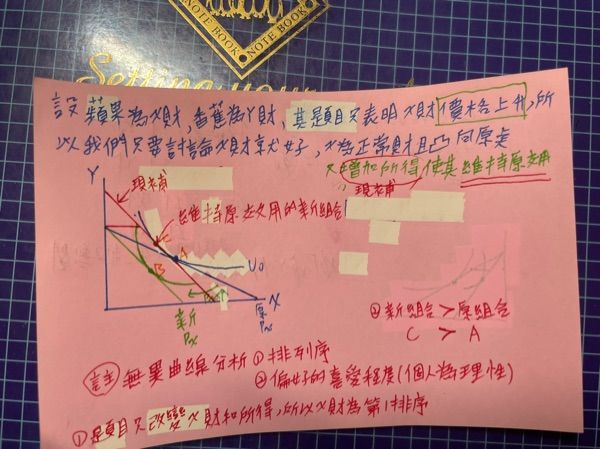 NOTE BOOK
NOTE BOOK
Setting your
設蘋果為X財,香蕉為Y財,其題目只表明X財價格上升,所
以我們只要討論X財就好,X為正常財且凸向原点
又增加所得使其維持原效用
現補
Y
現補
維持原效用的新組合
C
A
B
U0
X
新
Px
原
Px
②新組合>原組合
C > A
註 無異曲線分析①排列序
②偏好的喜愛程度(個人為理性)
①題目只改變X財和所得,所以X財為第1排序